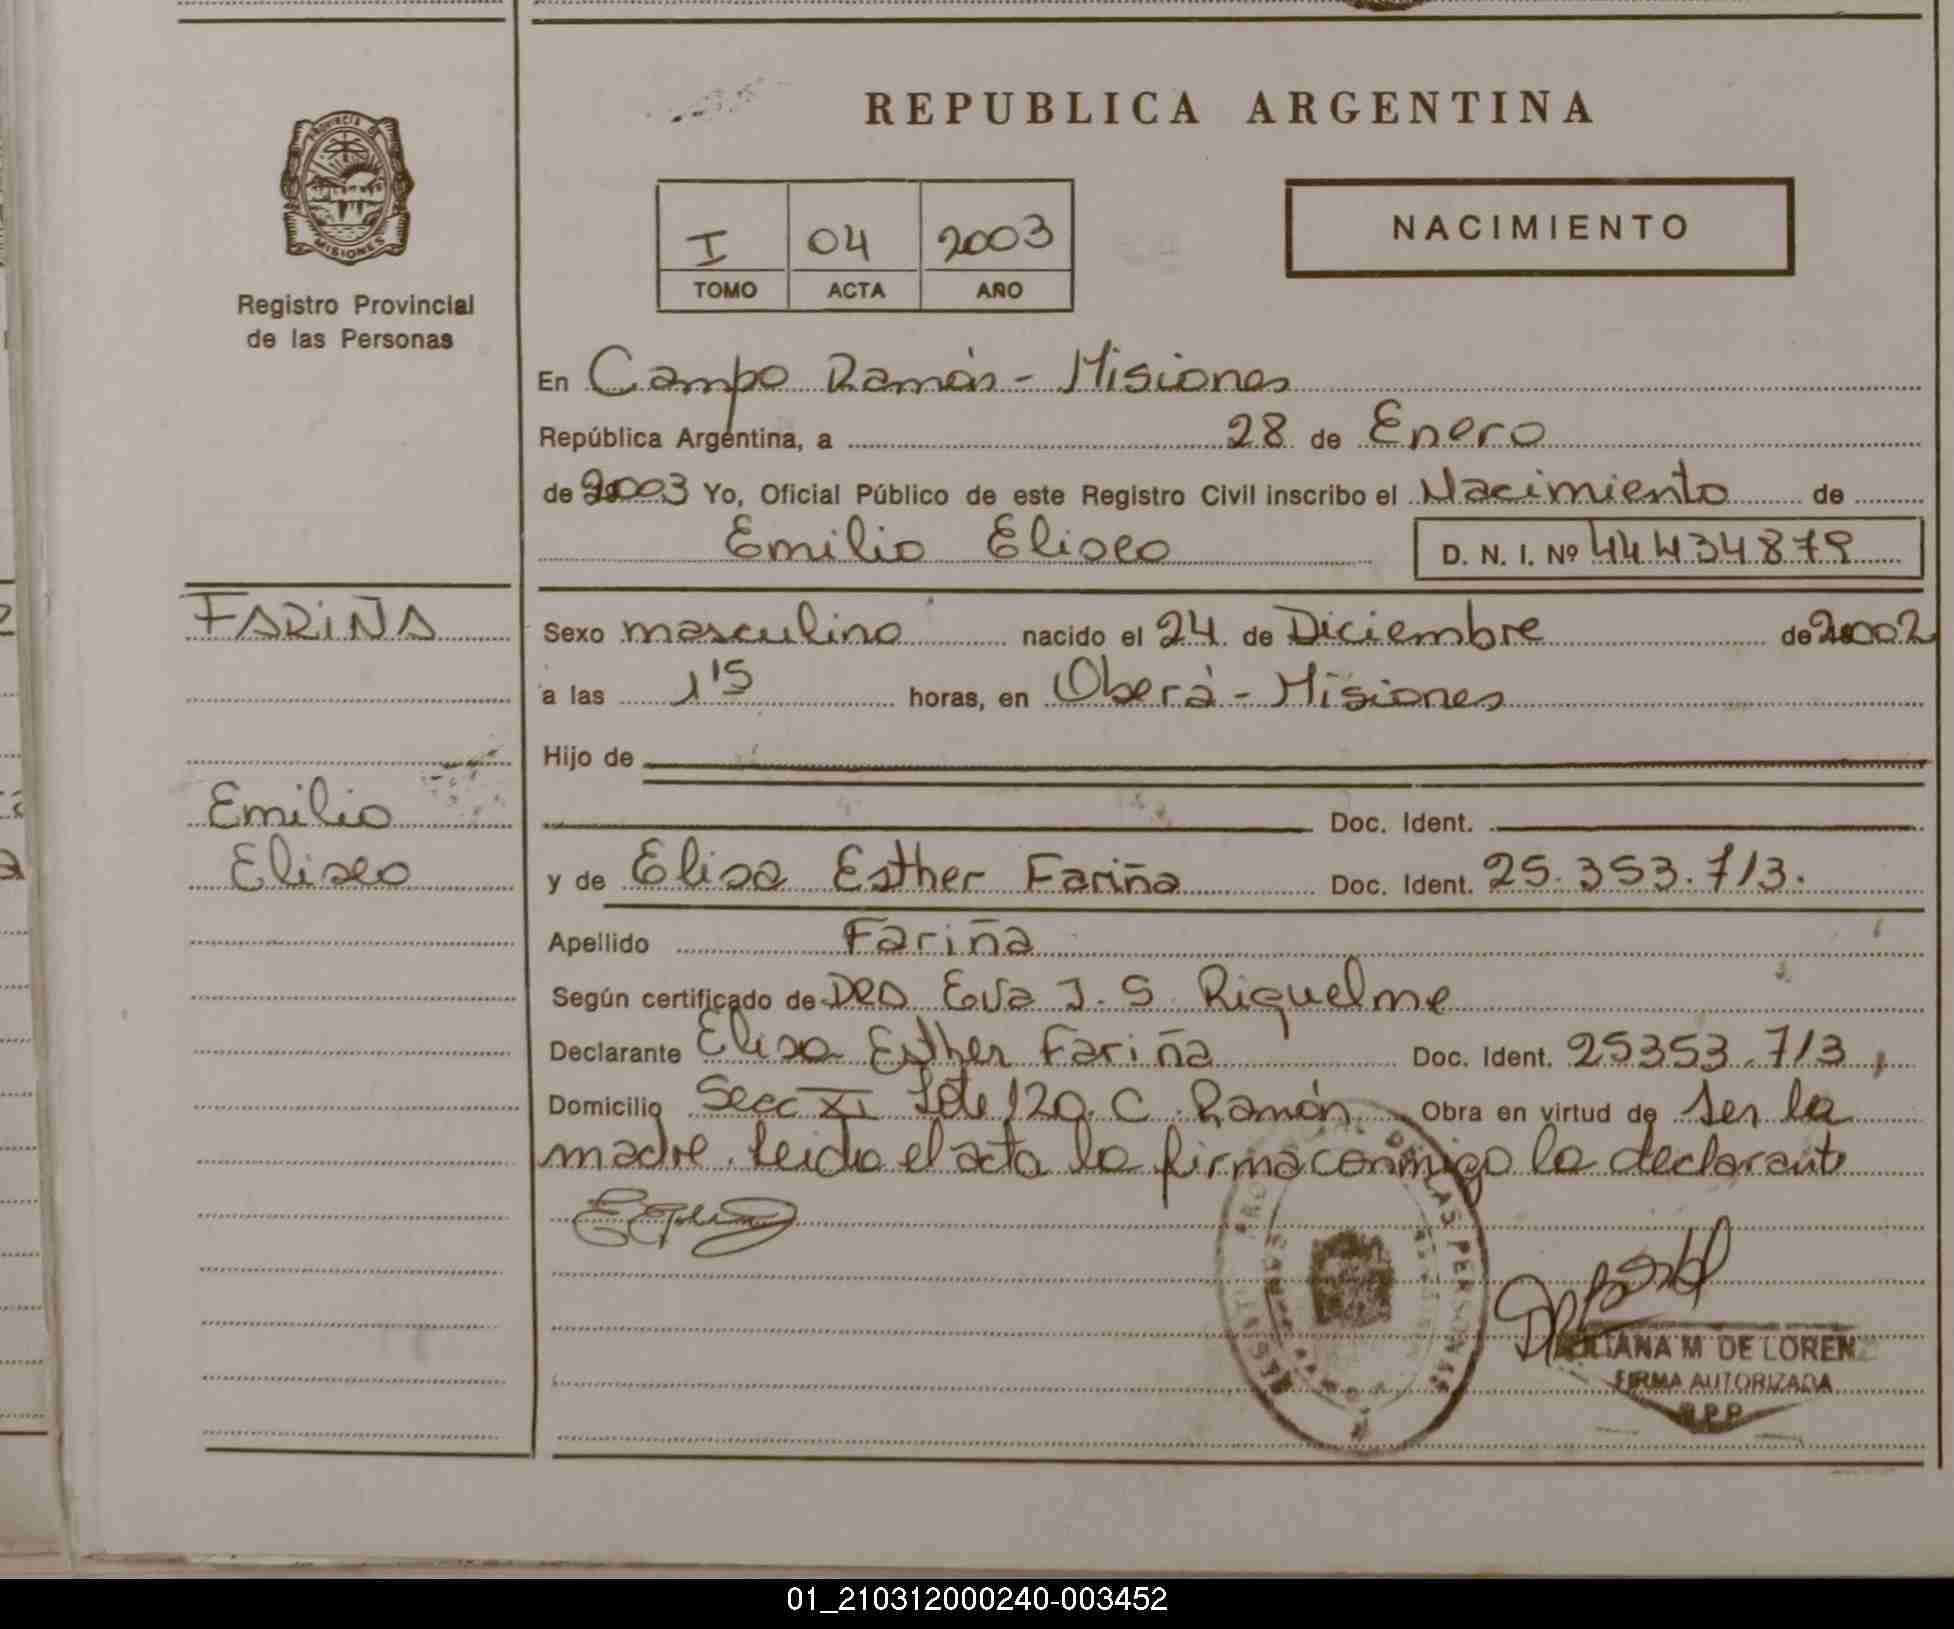 REPUBLICA ARGENTINA
PROVINCIA DE
MISIONES
Registro Provincial
de las Personas
I 04 2003
TOMO ACTA AÑO
NACIMIENTO
En Campo Ramón - Misiones
República Argentina, a 28 de Enero
de 2003 Yo, Oficial Público de este Registro Civil inscribo el Nacimiento de
Emilio Eliseo D. N. I. Nº 44434879
FARIÑA
Sexo masculino nacido el 24 de Diciembre de 2002
a las 1'15 horas, en Oberá - Misiones
Hijo de
Doc. Ident.
Emilio
Eliseo
y de Elisa Esther Fariña Doc. Ident. 25.353.713.
Apellido Fariña
Según certificado de DRA Eva J. S. Riquelme
Declarante Elisa Esther Fariña Doc. Ident. 25353.713,
Domicilio Secc XI Lote 120. C. Ramón Obra en virtud de ser la
madre. leida el acta la firma conmigo la declarante
DE LAS PERSONAS
M DE LOREN
FIRMA AUTORIZADA
R.P.P.
01_210312000240-003452